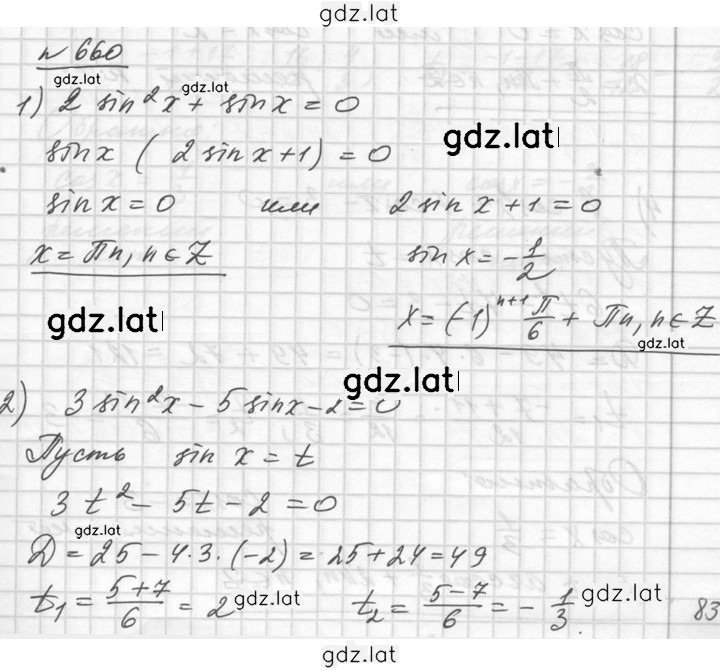 gdz.lat
№ 660
gdz.lat
1) 2 sin²x + sinx = 0
gdz.lat
gdz.lat
sinx ( 2 sinx + 1) = 0
sinx = 0 или 2 sin x + 1 = 0
x = Пn, n ∈ Z sin x = - 1/2
gdz.lat
x = (-1)ⁿ⁺¹ П/6 + Пn, n ∈ Z
gdz.lat
gdz.lat
2) 3 sin²x - 5 sinx - 2 = 0
Пусть sin x = t
3 t² - 5t - 2 = 0
gdz.lat
D = 25 - 4·3·(-2) = 25 + 24 = 49
t₁ = (5+7)/6 = 2 t₂ = (5-7)/6 = - 1/3
gdz.lat
gdz.lat
83
gdz.lat